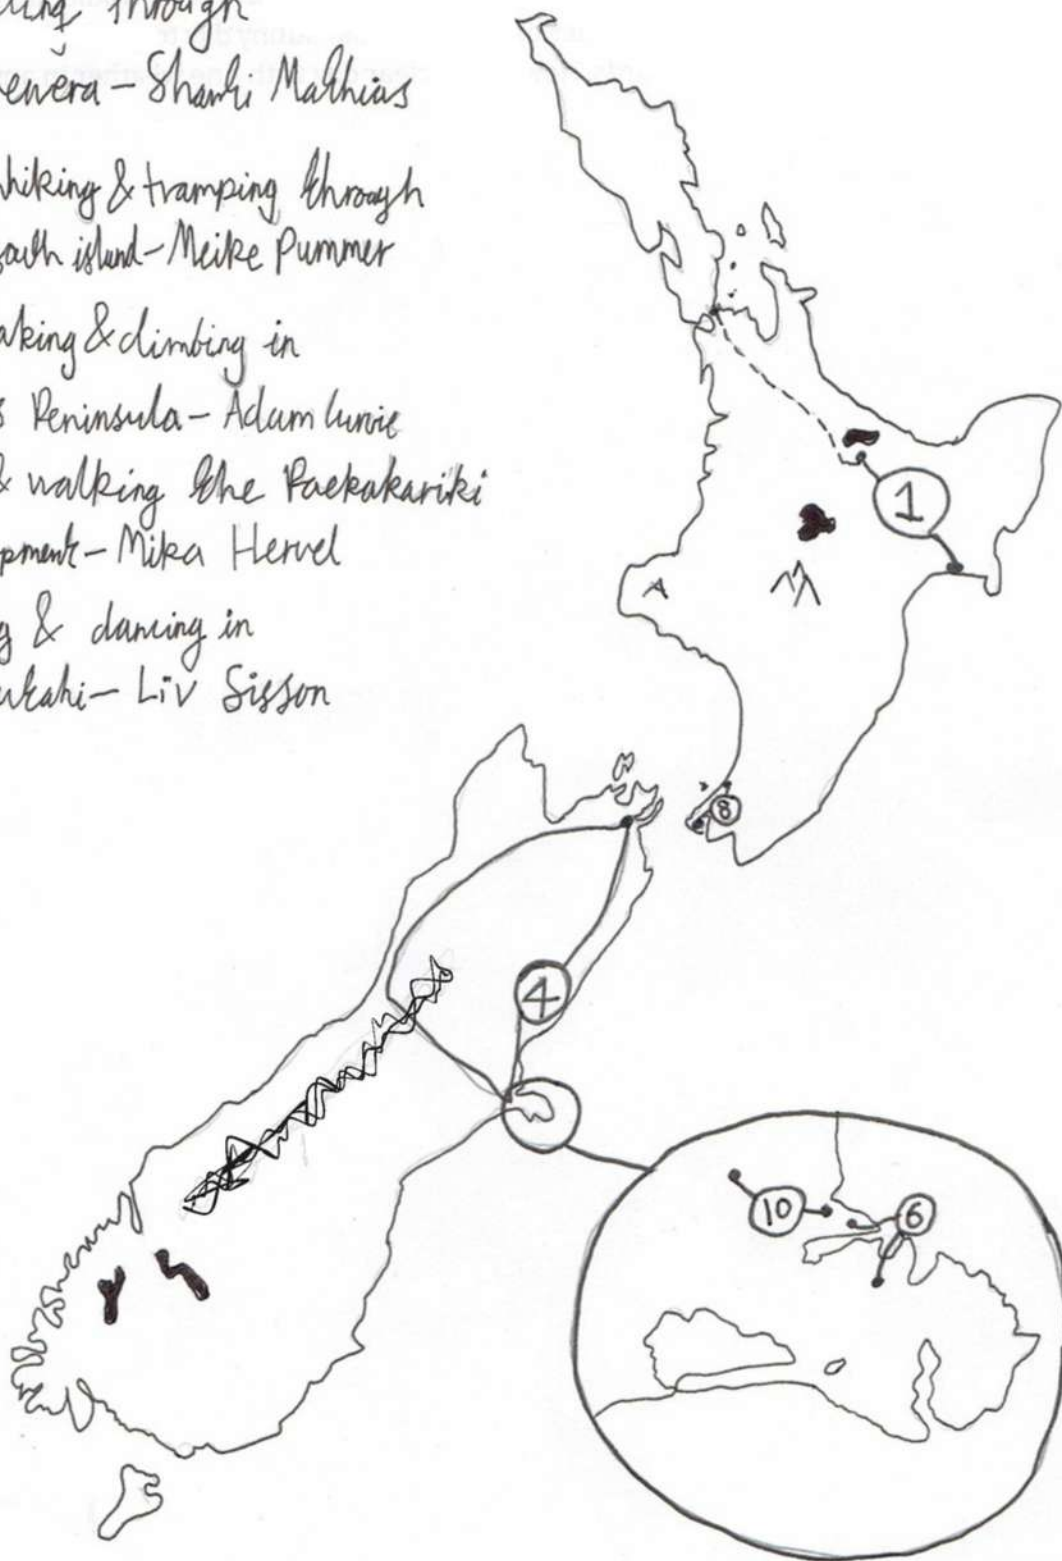 through
ewera - Shanti Mathias
hiking & tramping through
south island - Meike Pummer
aking & climbing in
s Peninsula - Adam Currie
& walking the Paekakariki
pment - Mika Hervel
g & dancing in
- Liv Sisson
1
8
4
10
6